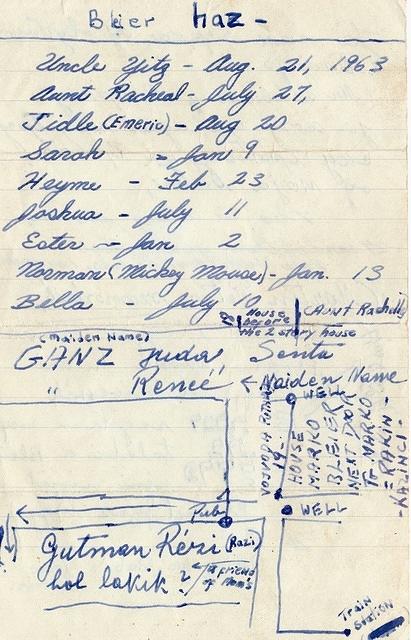 Blier haz -
Uncle Yitz - Aug. 21, 1963
Aunt Racheal - July 27,
Jidle (Emeric) - Aug 20
Sarah = Jan 9
Heyme - Feb 23
Joshua - July 11
Ester - Jan 2
Norman (Mickey Mouse) - Jan. 13
Bella - July 10
House before the 2 story house
Aunt Rachille
(Maiden Name)
GANZ Juda, Senta
" Reneé ← Maiden Name
WELL
VOJVODA PUTNIK
19.
HOUSE
MARKO
BLEIER
NEXT DOOR
TO MARKO
= RAKIN -
- KAZINCI -
WELL
Pub
Gutman Rézi (Razi)
hol lakik? a friend of Mom's
Train Station